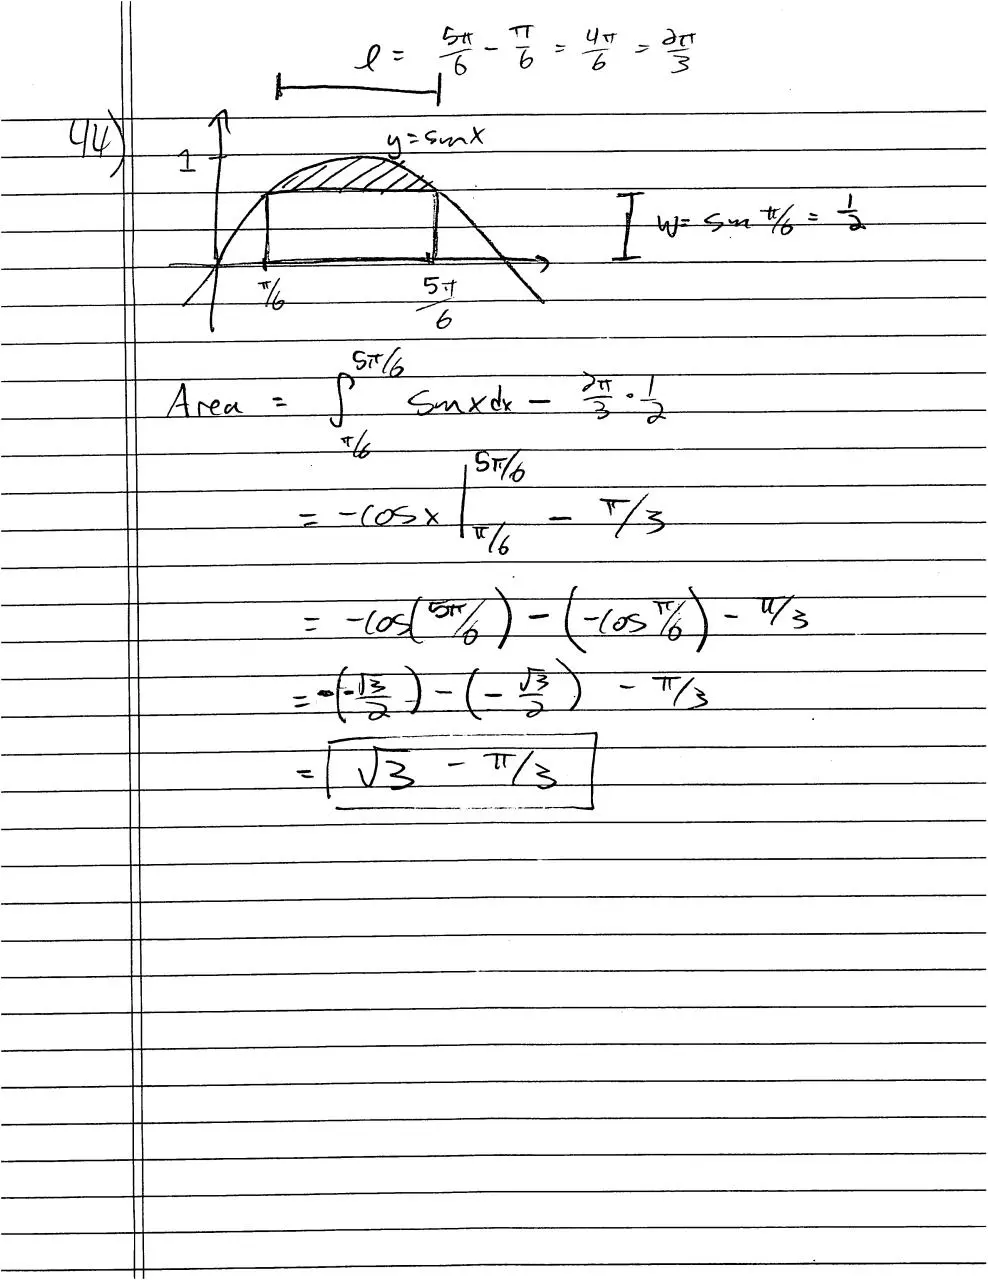 l = 5π/6 - π/6 = 4π/6 = 2π/3
44)
y = sin x
1
w = sin π/6 = 1/2
π/6
5π/6
Area = ∫_{π/6}^{5π/6} sin x dx - 2π/3 · 1/2
= -cos x |_{π/6}^{5π/6} - π/3
= -cos(5π/6) - (-cos π/6) - π/3
= -(-√3/2) - (-√3/2) - π/3
= √3 - π/3